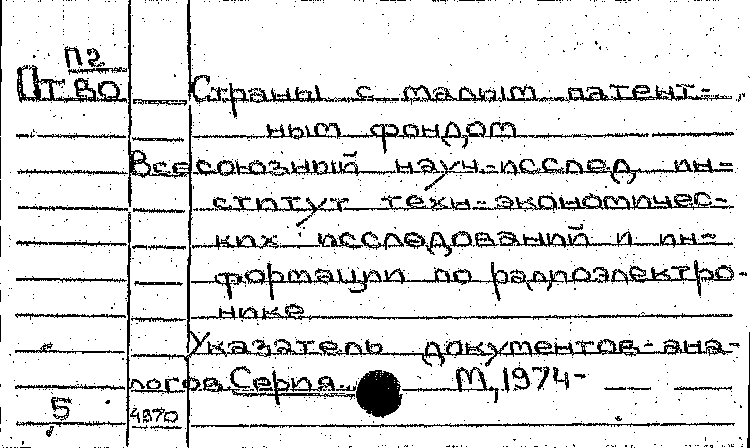 П2
Пт.ВО Страны с малым патент-
ным фондом
Всесоюзный науч-исслед. ин-
ститут техн-экономичес-
ких исследований и ин-
формации по радиоэлектро-
нике
Указатель документов-ана-
логов Серия.. М, 1974-
5 4970